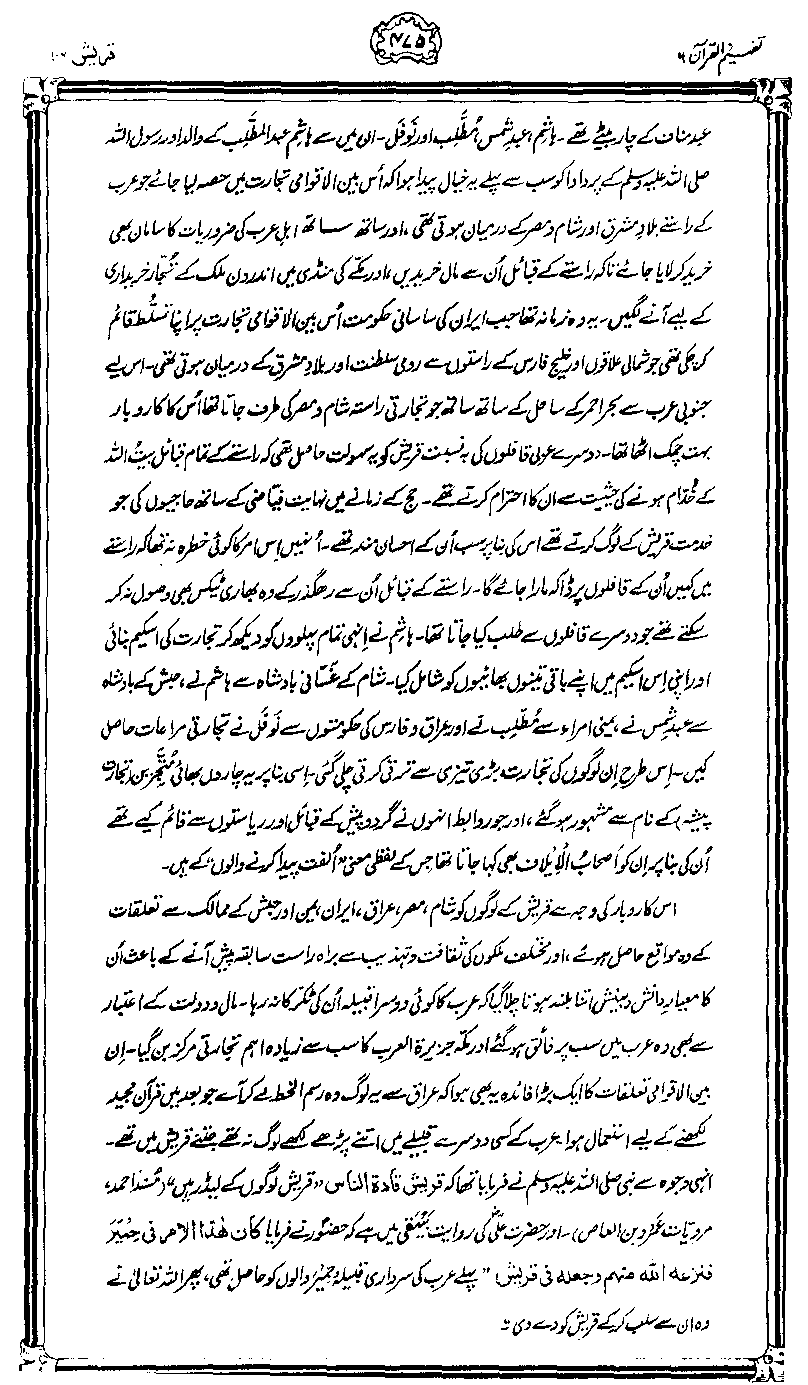 تفہیم القرآن ۶
۴۷۵
قریش ۱۰۶
عبد مناف کے چار بیٹے تھے۔ ہاشم، عبدِ شمس، مُطَّلِب اور نَوفَل۔ ان میں سے ہاشم عبدالمطَّلِب کے والد اور رسول اللہ
صلی اللہ علیہ وسلم کے پردادا کو سب سے پہلے یہ خیال پیدا ہوا کہ اُس بین الاقوامی تجارت میں حصہ لیا جائے جو عرب
کے راستے بلادِ مشرق اور شام و مصر کے درمیان ہوتی تھی، اور ساتھ ساتھ اہلِ عرب کی ضروریات کا سامان بھی
خرید کر لایا جائے تاکہ راستے کے قبائل اُن سے مال خریدیں، اور مکے کی منڈی میں اندرون ملک کے تُجّار خریداری
کے لیے آنے لگیں۔ یہ وہ زمانہ تھا جب ایران کی ساسانی حکومت اُس بین الاقوامی تجارت پر اپنا تسلُّط قائم
کر چکی تھی جو شمالی علاقوں اور خلیج فارس کے راستوں سے رومی سلطنت اور بلادِ مشرق کے درمیان ہوتی تھی۔ اس لیے
جنوبی عرب سے بحرِ احمر کے ساحل کے ساتھ ساتھ جو تجارتی راستہ شام و مصر کی طرف جاتا تھا اُس کا کاروبار
بہت چمک اٹھا تھا۔ دوسرے عربی قافلوں کی بہ نسبت قریش کو یہ سہولت حاصل تھی کہ راستے کے تمام قبائل بیتُ اللہ
کے خُدّام ہونے کی حیثیت سے ان کا احترام کرتے تھے۔ حج کے زمانے میں نہایت فیاضی کے ساتھ حاجیوں کی جو
خدمت قریش کے لوگ کرتے تھے اس کی بنا پر سب اُن کے احسان مند تھے۔ اُنہیں اِس امر کا کوئی خطرہ نہ تھا کہ راستے
میں کہیں اُن کے قافلوں پر ڈاکہ مارا جائے گا۔ راستے کے قبائل اُن سے رھگذر کے وہ بھاری ٹیکس بھی وصول نہ کر
سکتے تھے جو دوسرے قافلوں سے طلب کیا جاتا تھا۔ ہاشم نے اِنہی تمام پہلووں کو دیکھ کر تجارت کی اسکیم بنائی
اور اپنی اِس اسکیم میں اپنے باقی تینوں بھائیوں کو شامل کیا۔ شام کے غسّانی بادشاہ سے ہاشم نے، حبش کے بادشاہ
سے عبدِ شمس نے، یمنی امراء سے مُطَّلِب نے اور عراق و فارس کی حکومتوں سے نَوفَل نے تجارتی مراعات حاصل
کیں۔ اِس طرح اِن لوگوں کی تجارت بڑی تیزی سے ترقی کرتی چلی گئی۔ اِسی بنا پر یہ چاروں بھائی مُتَّجِرین (تجارت
پیشہ) کے نام سے مشہور ہو گئے، اور جو روابط انہوں نے گرد و پیش کے قبائل اور ریاستوں سے قائم کیے تھے
اُن کی بنا پر اِن کو اَصحابُ الْاِیلاف بھی کہا جاتا تھا جس کے لفظی معنی "اُلفت پیدا کرنے والوں" کے ہیں۔
اس کاروبار کی وجہ سے قریش کے لوگوں کو شام، مصر، عراق، ایران، یمن اور حبش کے ممالک سے تعلقات
کے وہ مواقع حاصل ہوئے، اور مختلف ملکوں کی ثقافت و تہذیب سے براہِ راست سابقہ پیش آنے کے باعث اُن
کا معیارِ دانش و بینش اتنا بلند ہوتا چلا گیا کہ عرب کا کوئی دوسرا قبیلہ اُن کی ٹکر کا نہ رہا۔ مال و دولت کے اعتبار
سے بھی وہ عرب میں سب پر فائق ہو گئے اور مکّہ جزیرۃ العرب کا سب سے زیادہ اہم تجارتی مرکز بن گیا۔ اِن
بین الاقوامی تعلقات کا ایک بڑا فائدہ یہ بھی ہوا کہ عراق سے یہ لوگ وہ رسم الخط لے کر آئے جو بعد میں قرآن مجید
لکھنے کے لیے استعمال ہوا۔ عرب کے کسی دوسرے قبیلے میں اتنے پڑھے لکھے لوگ نہ تھے جتنے قریش میں تھے۔
انہی وجوہ سے نبی صلی اللہ علیہ وسلم نے فرمایا تھا کہ قریش قادة الناس "قریش لوگوں کے لیڈر ہیں" (مُسند احمد،
مرویات عَمْرو بن العاص)۔ اور حضرت علیؓ کی روایت بَیْہَقی میں ہے کہ حضورؐ نے فرمایا کان ھٰذا الامر فی حِمْیَر
فنزعه الله منهم وجعله فی قریش "پہلے عرب کی سرداری قبیلہ حِمْیَر والوں کو حاصل تھی، پھر اللہ تعالیٰ نے
وہ ان سے سلب کر کے قریش کو دے دی"۔